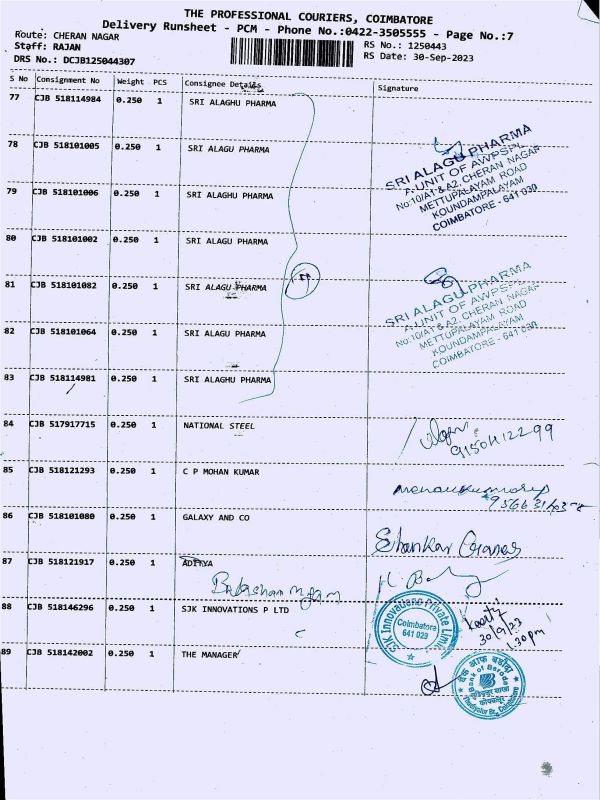 THE PROFESSIONAL COURIERS, COIMBATORE
Delivery Runsheet - PCM - Phone No.:0422-3505555 - Page No.:7
Route: CHERAN NAGAR
Staff: RAJAN
RS No.: 1250443
DRS No.: DCJB125044307
RS Date: 30-Sep-2023
S No Consignment No Weight PCS Consignee Details Signature
77 CJB 518114984 0.250 1 SRI ALAGHU PHARMA
78 CJB 518101005 0.250 1 SRI ALAGU PHARMA
SRI ALAGU PHARMA
A UNIT OF AWPSPL
No:10/A1 & A2, CHERAN NAGAR
METTUPALAYAM ROAD
KOUNDAMPALAYAM
COIMBATORE - 641 030
79 CJB 518101006 0.250 1 SRI ALAGHU PHARMA
80 CJB 518101002 0.250 1 SRI ALAGU PHARMA
81 CJB 518101082 0.250 1 SRI ALAGU PHARMA
SRI ALAGU PHARMA
A UNIT OF AWPSPL
No:10/A1 & A2, CHERAN NAGAR
METTUPALAYAM ROAD
KOUNDAMPALAYAM
COIMBATORE - 641 030
82 CJB 518101064 0.250 1 SRI ALAGU PHARMA
83 CJB 518114981 0.250 1 SRI ALAGHU PHARMA
84 CJB 517917715 0.250 1 NATIONAL STEEL
85 CJB 518121293 0.250 1 C P MOHAN KUMAR
86 CJB 518101080 0.250 1 GALAXY AND CO
87 CJB 518121917 0.250 1 ADITYA
88 CJB 518146296 0.250 1 SJK INNOVATIONS P LTD
SJK Innovations Private Limi
Coimbatore
641 029
30/9/23
1.30pm
89 CJB 518142002 0.250 1 THE MANAGER
बैंक ऑफ बड़ौदा
Bank of Baroda